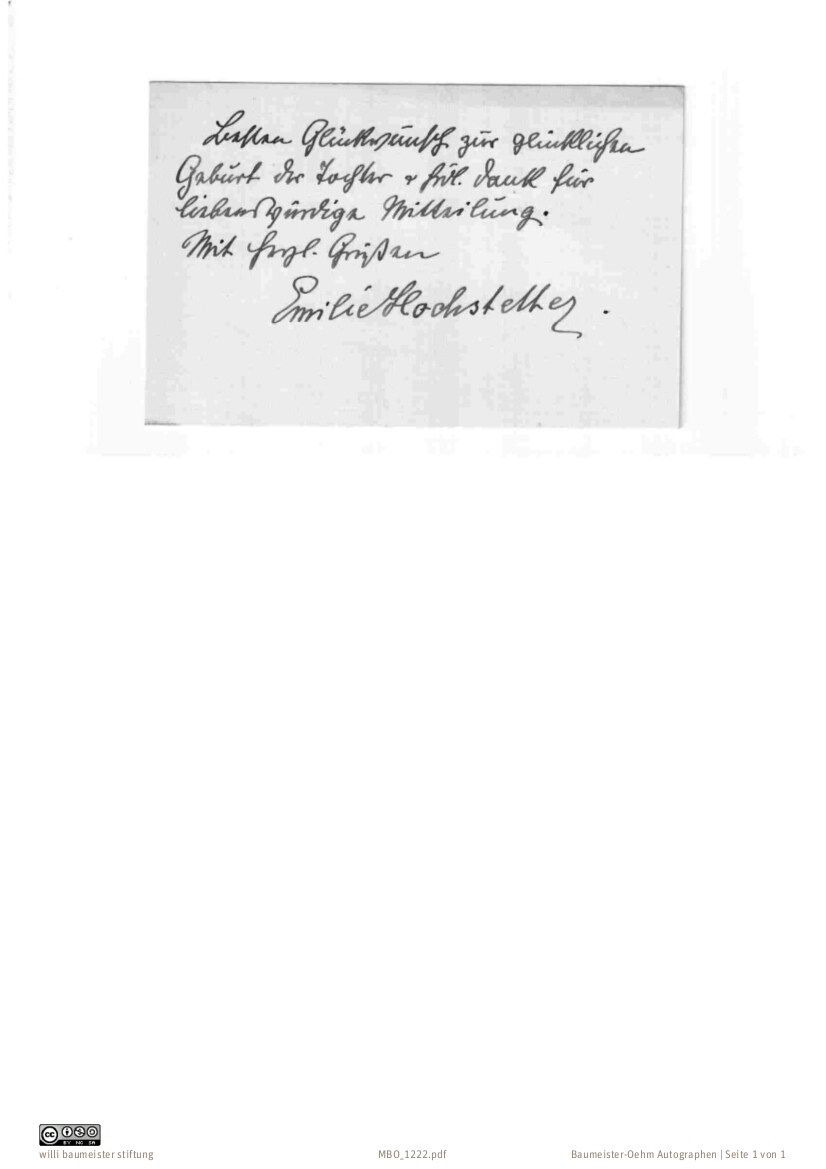 Besten Glückwunsch zur glücklichen
Geburt der Tochter & frdl. Dank für
liebenswürdige Mitteilung.
Mit herzl. Grüßen
Emilie Hochstetter.
CC BY NC SA
willi baumeister stiftung
MBO_1222.pdf
Baumeister-Oehm Autographen | Seite 1 von 1